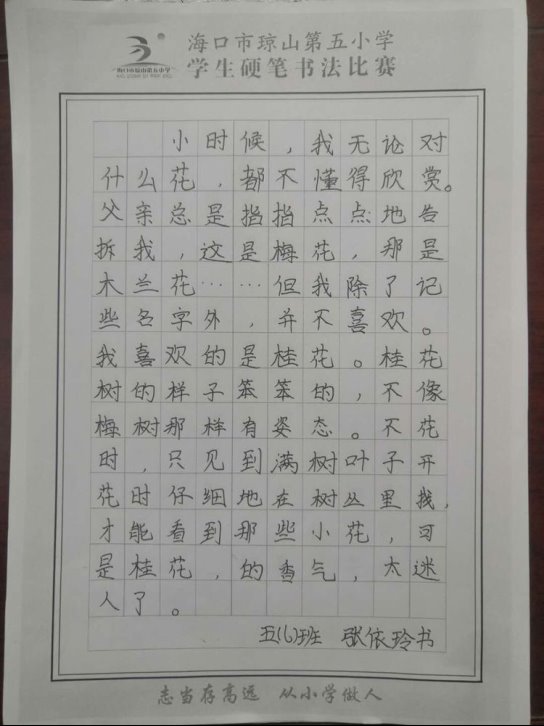 海口市琼山第五小学
学生硬笔书法比赛
海口市琼山第五小学
小时候，我无论对
什么花，都不懂得欣赏。
父亲总是指指点点地告
拆我，这是梅花，那是
木兰花……但我除了记
些名字外，并不喜欢。
我喜欢的是桂花。桂花
树的样子笨笨的，不像
梅树那样有姿态。不花
时，只见到满树叶子开
花时仔细地在树丛里找，
才能看到那些小花，可
是桂花，的香气，太迷
人了。
五(6)班 张依玲书
志当存高远 从小学做人